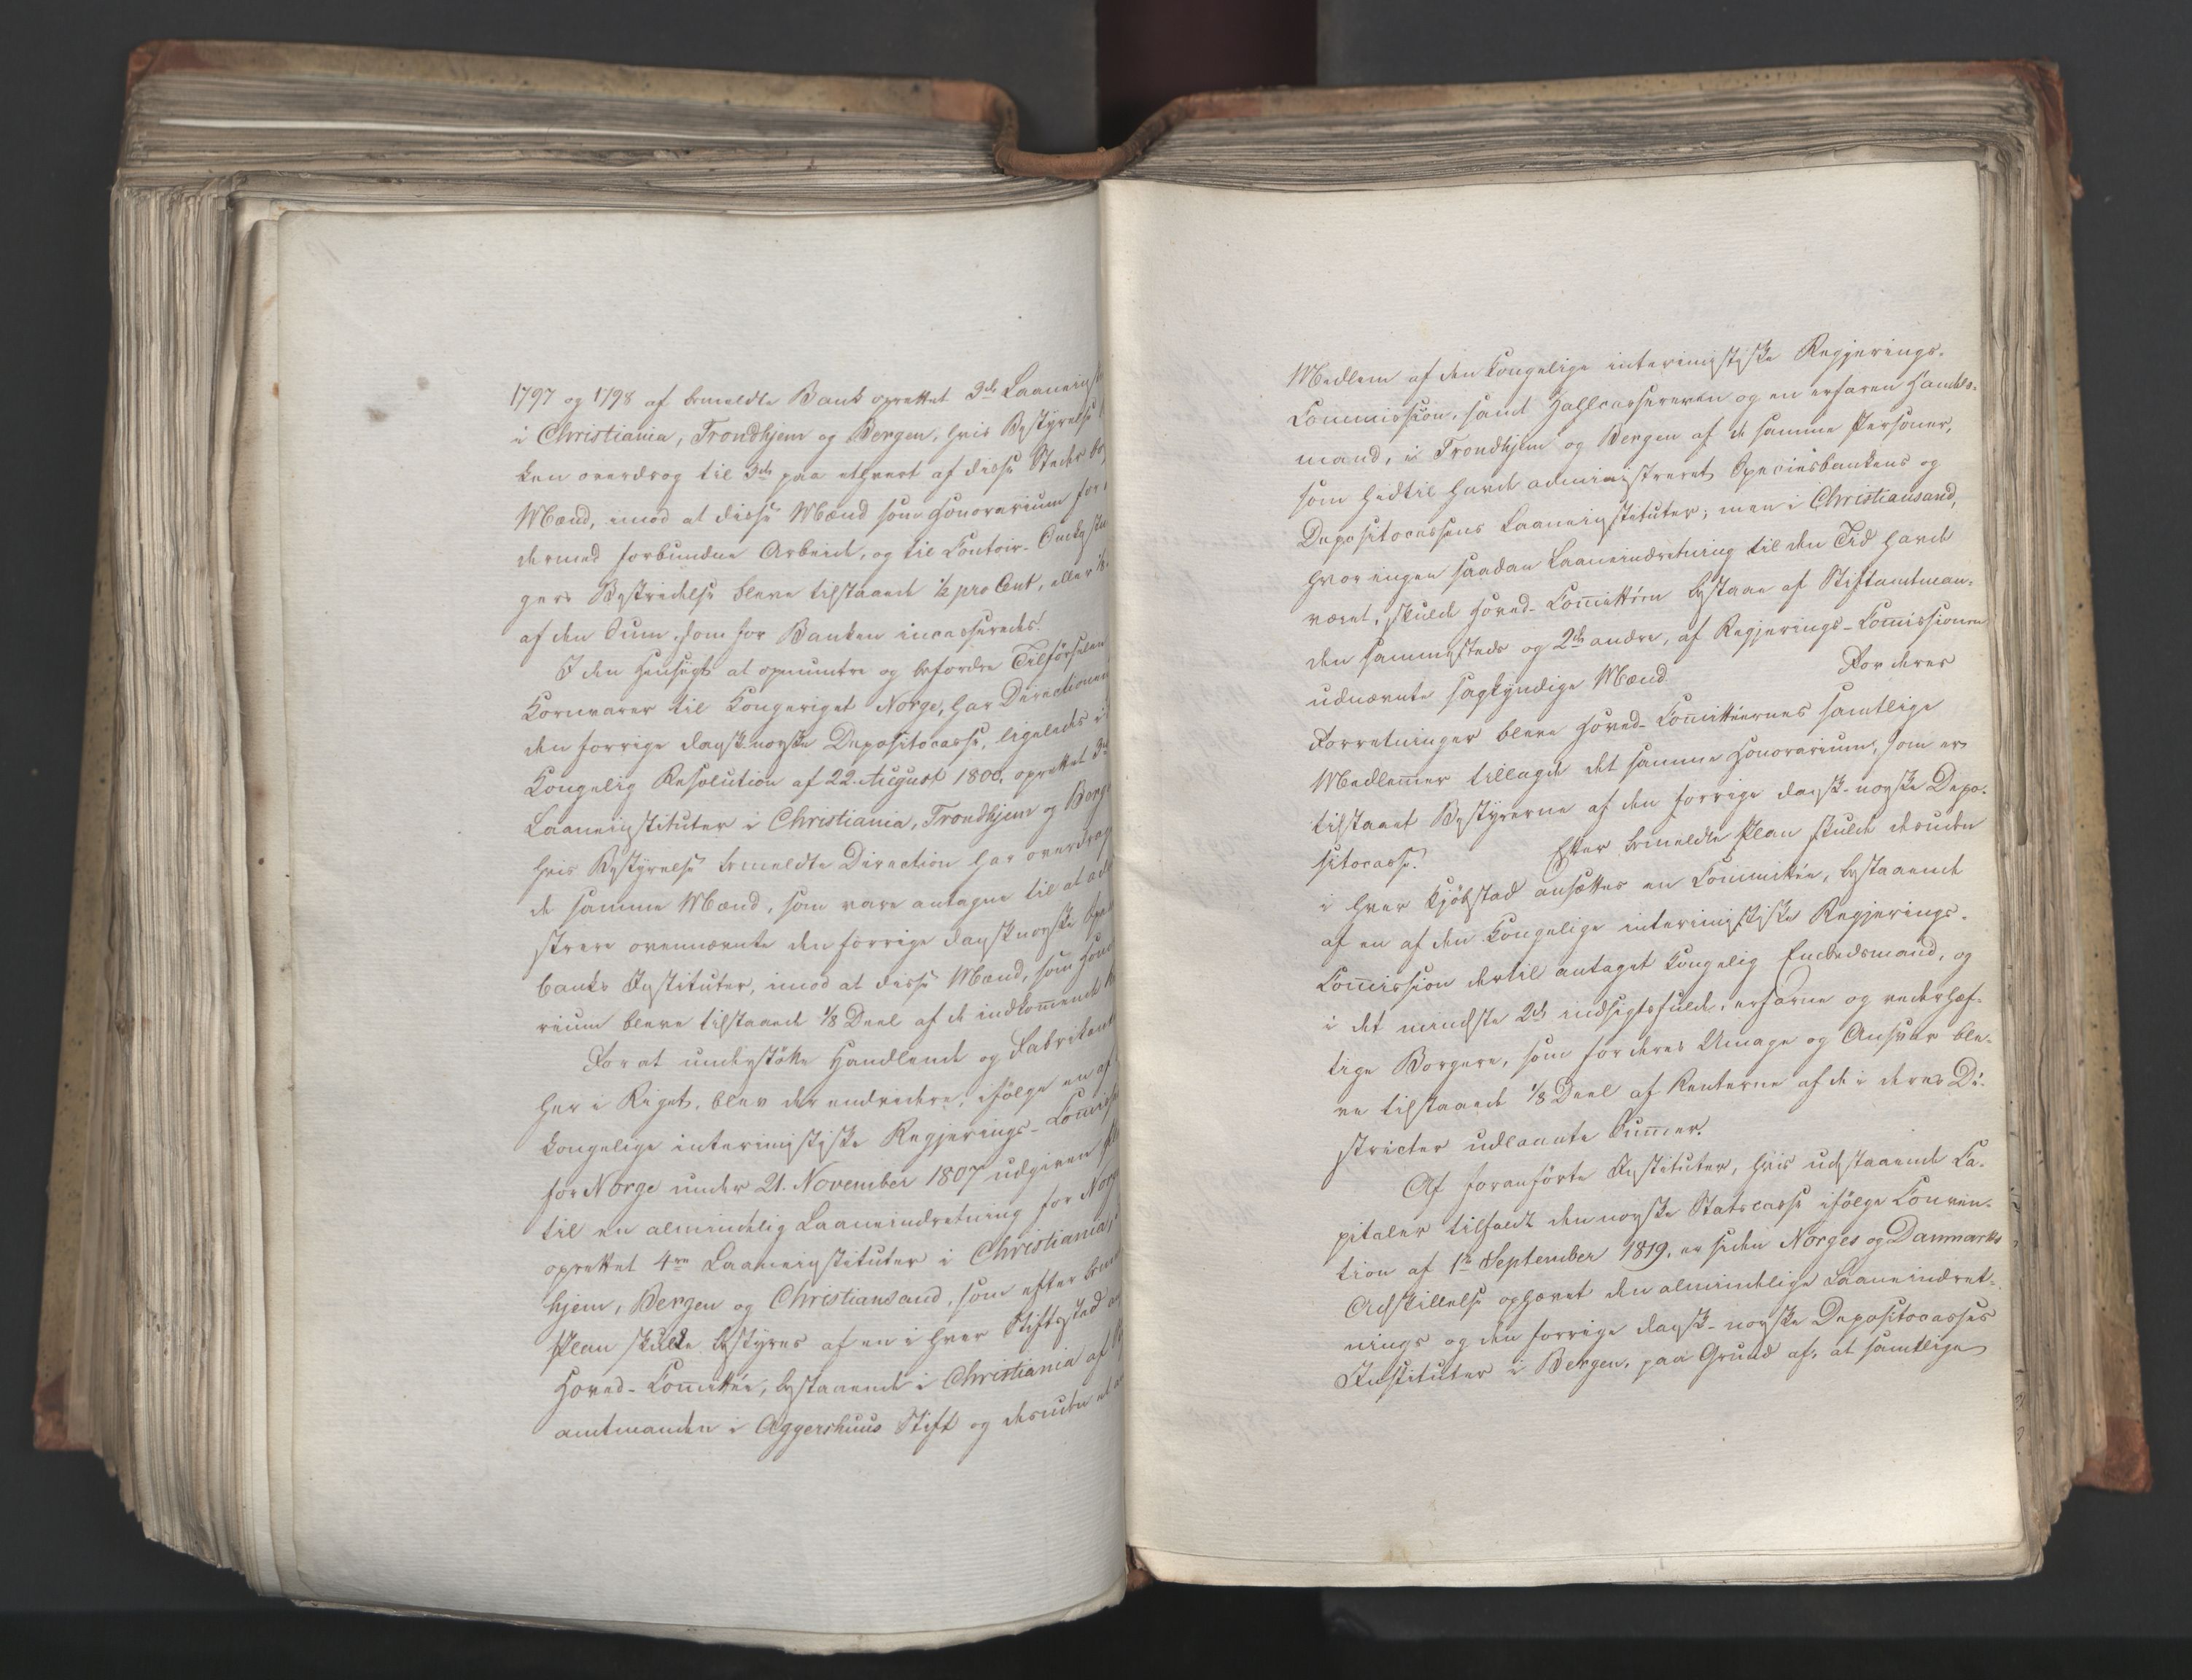 1797 og 1798 af bemeldte Bank oprettet 3de Laaneinst
i Christiania, Trondhjem og Bergen, hvis Bestyrelse
ken overdrog til 3de paa ethvert af disse Steder bo
Mænd, imod at disse Mænd som Honorarium for
dermed forbundne Arbeid, og til Contoir-Omkostn
gers Bestridelse bleve tilstaaede ½ pro Cent, eller
af den Sum, som for Banken incasseredes.
I den Hensigt at opmuntre og befordre Tilførselen
Kornvarer til Kongeriget Norge, har Directionen
den forrige dansk-norske Depositocasse, ligeledes i
Kongelig Resolution af 22. August 1800, oprettet 3de
Laaneinstituter i Christiania, Trondhjem og Berge
hvis Bestyrelse bemeldte Direction har overdrag
de samme Mænd, som vare antagne til at ad
strere ovennævnte den forrige dansk norske Spe
banks Instituter, imod at disse Mænd, som Hono
rium bleve tilstaaede 1/8 Deel af de indkommende
For at understøtte Handlende og Fabrikant
her i Riget, blev der endvidere, ifølge en af
kongelige interimistiske Regjerings-Commiss
for Norge under 21. November 1807 udgiven
til en almindelig Laaneindretning for Norge
oprettet 4re Laaneinstituter i Christiania,
hjem, Bergen og Christiansand, som efter bem
Plan skulde bestyres af en i hver Stiftsstad
Hoved-Committee, bestaaende i Christiania af
amtmanden i Aggershuus Stift og desuden et
Medlem af den Kongelige interimistiske Regjerings-
Commission, samt Zahlcassereren og en erfaren Handels-
mand, i Trondhjem og Bergen af de samme Personer,
som hidtil havde administreret Speciesbankens og
Depositocassens Laaneinstituter; men i Christiansand,
hvor ingen saadan Laaneindretning til den Tid havde
været, skulde Hoved-Committeen bestaae af Stiftamtman-
den sammesteds og 2de andre, af Regjerings-Commissionen
udnævnte sagkyndige Mænd. For deres
Forretninger bleve Hoved-Committeernes samtlige
Medlemmer tillagde det samme Honorarium, som er
tilstaaet Bestyrerne af den forrige dansk-norske Depo-
sitocasse. Efter bemeldte Plan skulde desuden
i hver Kjøbstad ansættes en Committee, bestaaende
af en af den Kongelige interimistiske Regjerings-
Commission dertil antaget kongelig Embedsmand, og
i det mindste 2de indsigtsfulde, erfarne og vederhæf-
tige Borgere, som for deres Umage og Ansvar ble-
ve tilstaaede 1/8 Deel af Renterne af de i deres Di-
stricter udlaante Summer.
Af foranførte Instituter, hvis udestaaende Ca-
pitaler tilfaldt den norske Statscasse ifølge Conven-
tion af 1ste September 1819, er siden Norges og Danmarks
Adskillelse ophævet den almindelige Laaneindret-
nings og den forrige dansk-norske Depositocasses
Instituter i Bergen, paa Grund af, at samtlige